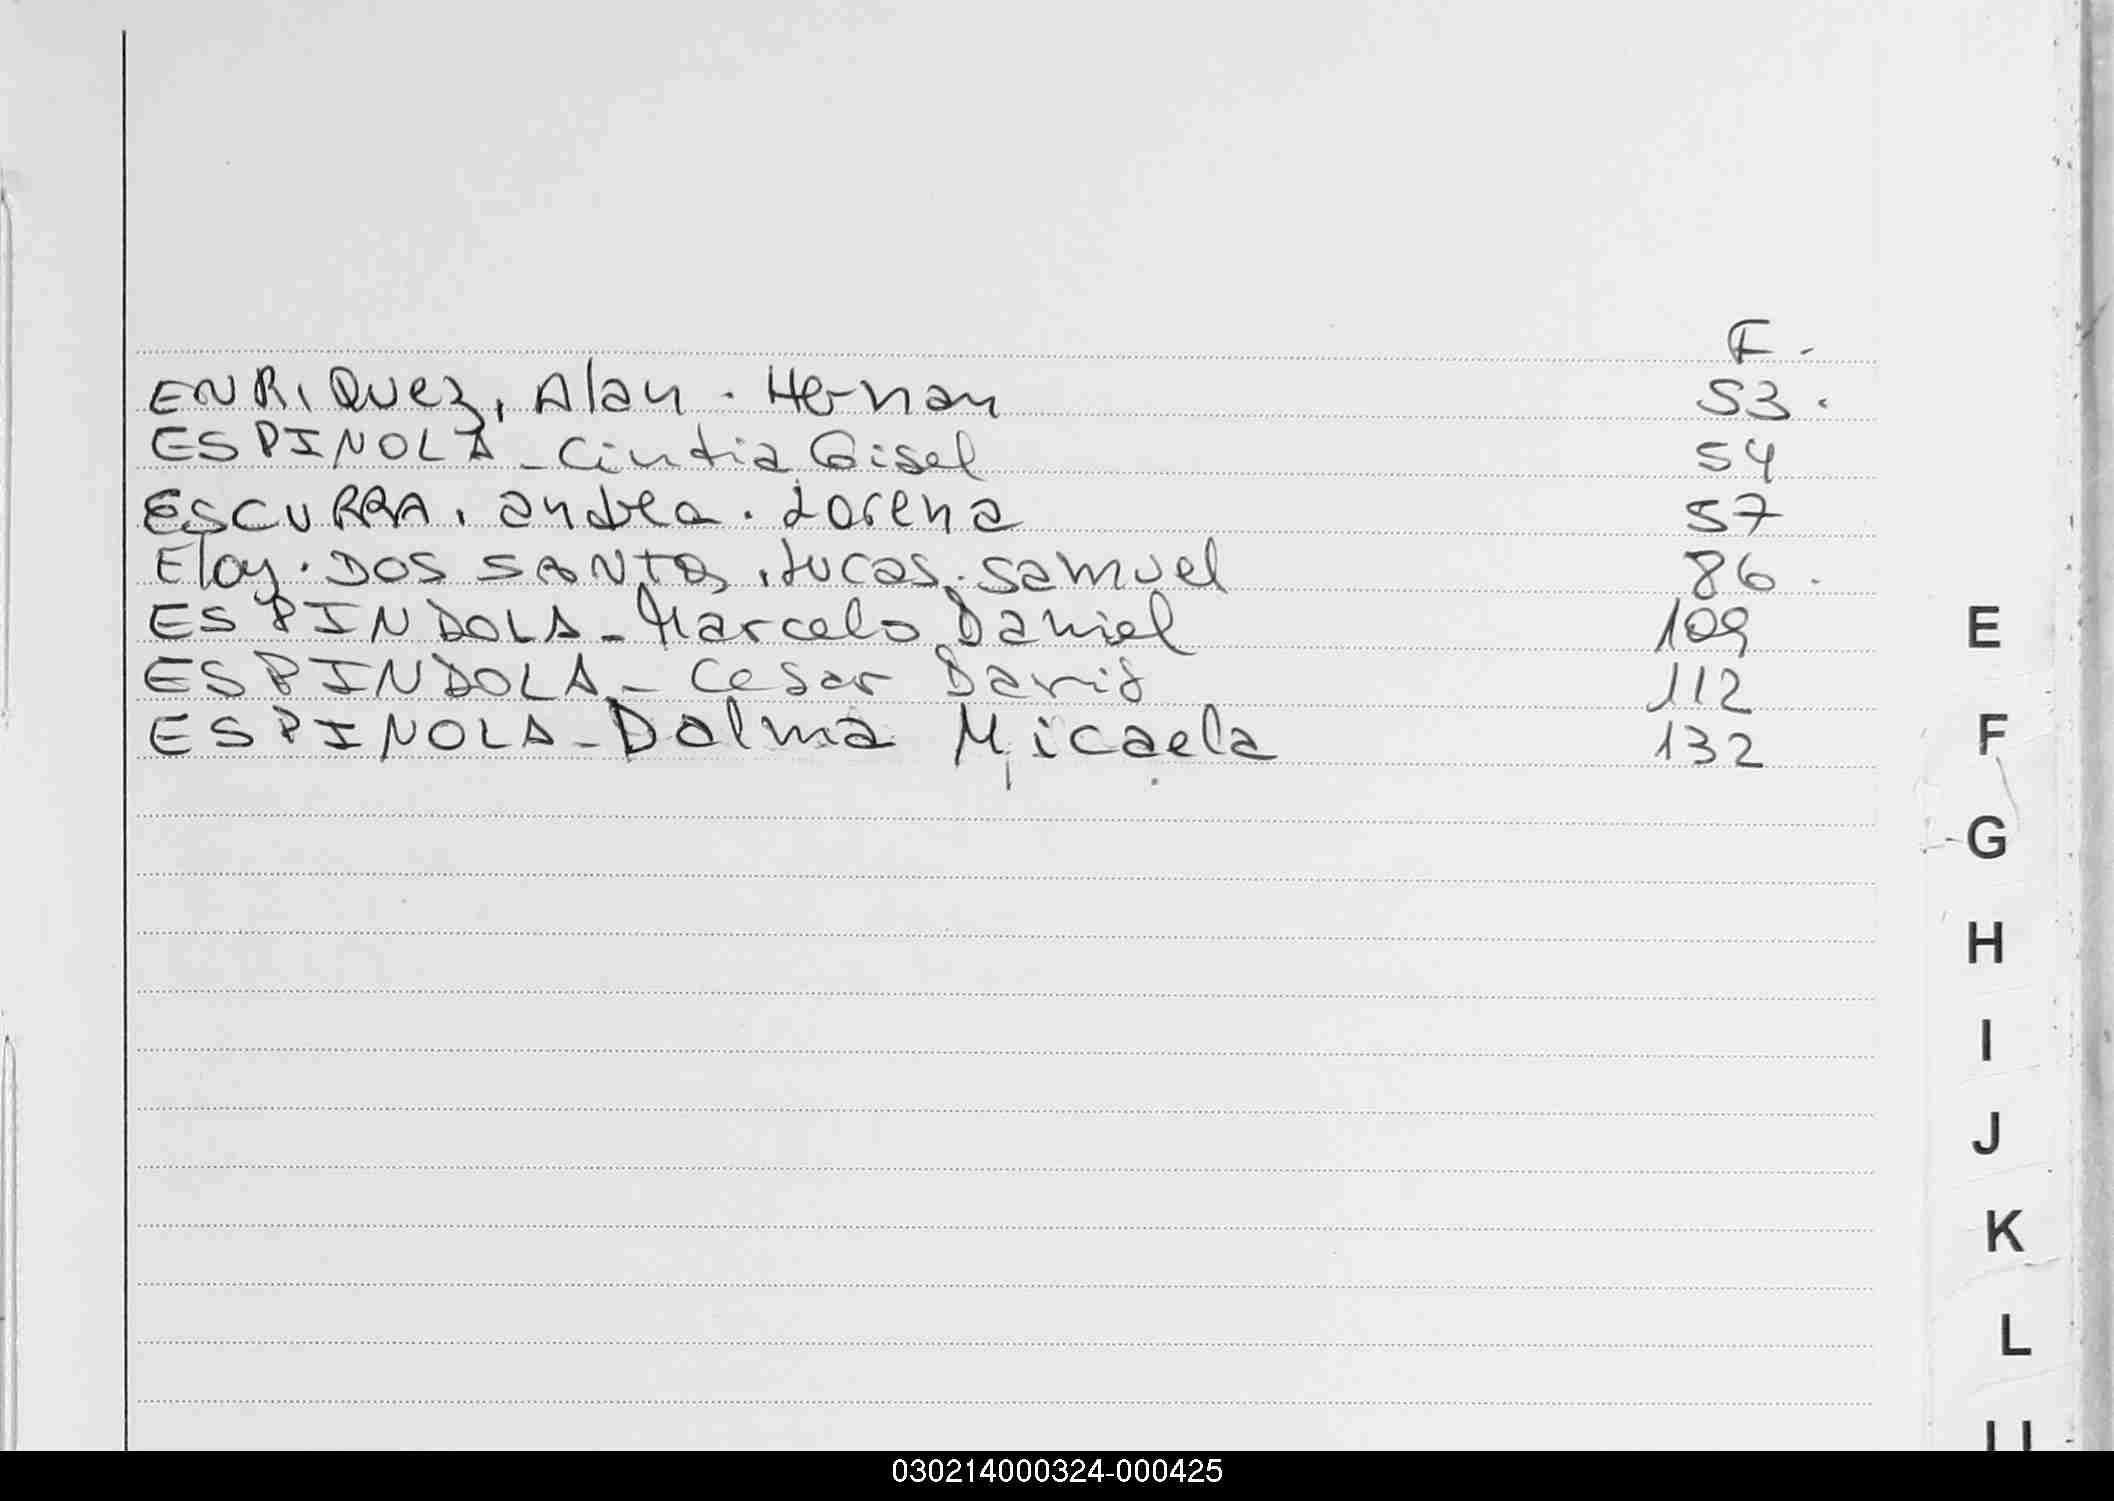 F.
ENRIQUEZ, Alan. Hernan 53.
ESPINOLA - Cintia Gisel 54
ESCURRA, andrea. Lorena 57
Eloy. DOS SANTOS, Lucas. Samuel 86.
ESPINDOLA - Marcelo Daniel 109
ESPINDOLA - Cesar David 112
ESPINOLA - Dalma Micaela 132
E
F
G
H
I
J
K
L
030214000324-000425